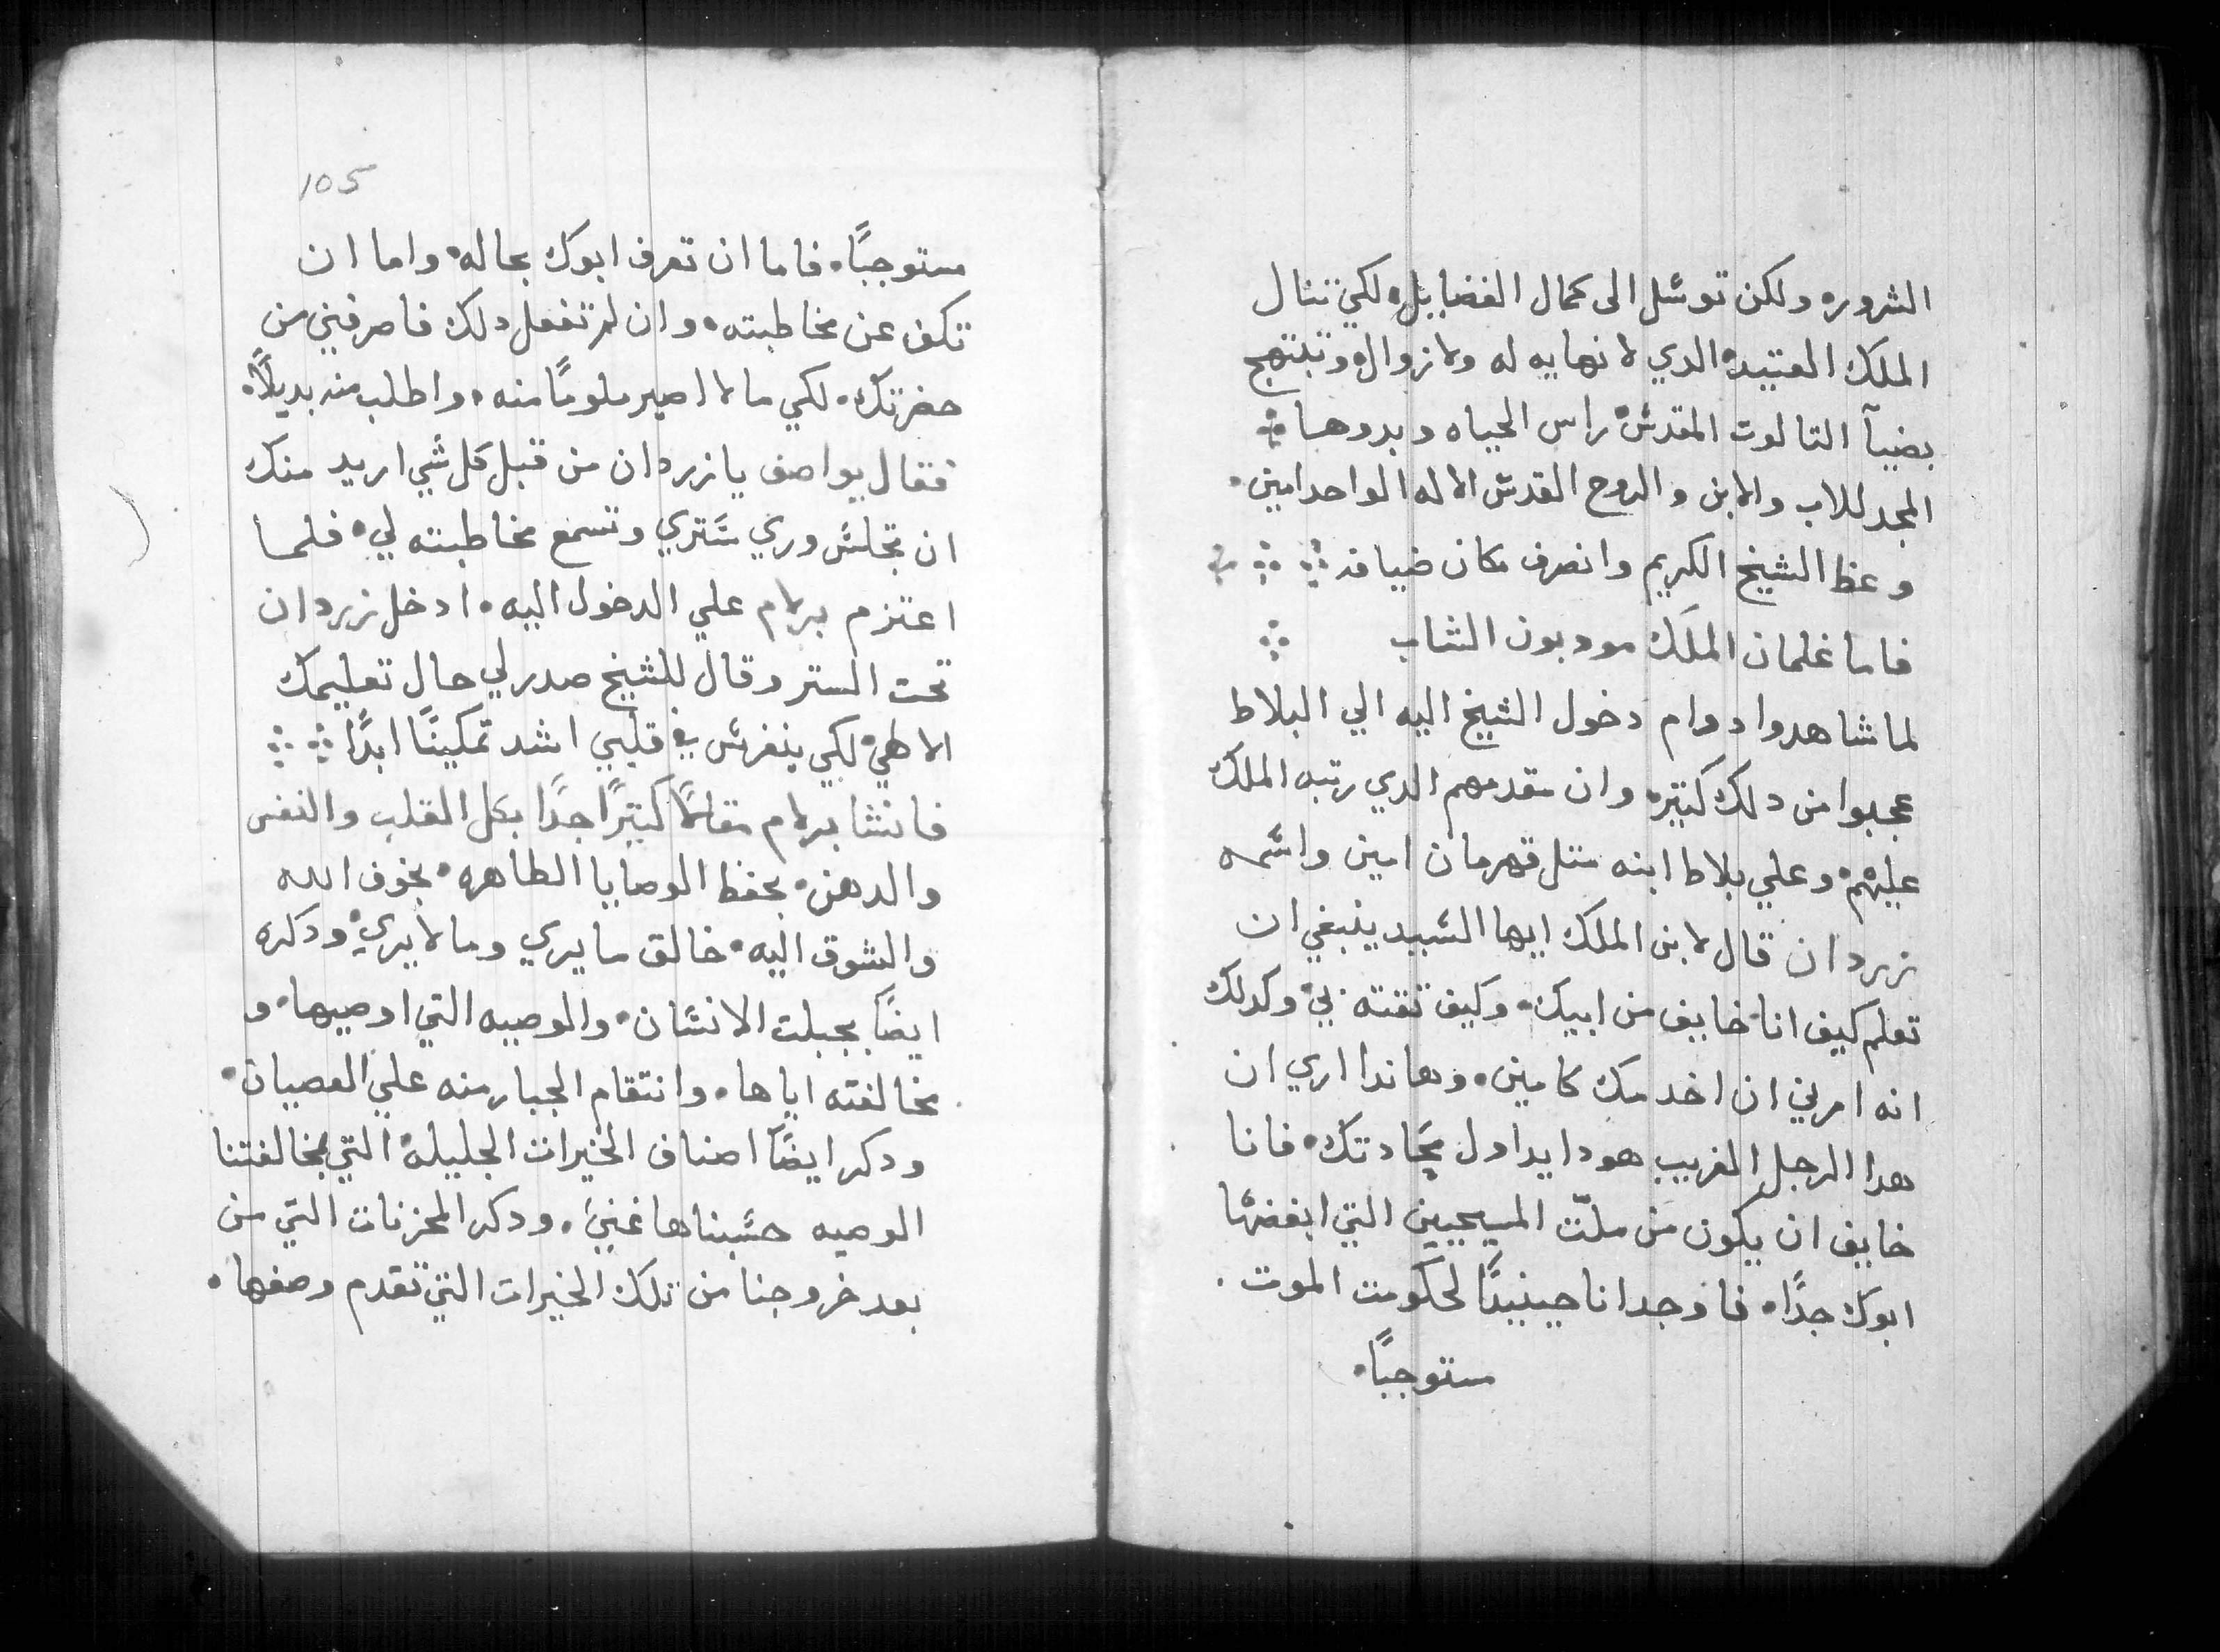 الشروره ولكن توسل الى كمال الفضايل، لكي تنال
الملك العتيد، الدي لا نهايه له ولا زوال، وتبتهج
بضيآ التالوت المقدس، راس الحياه وبدوها ܀
المجد للاب والابن والروح القدس الاله الواحد امين.
وعظ الشيخ الكريم وانصرف مكان ضيافه ܀ ܀ ܀
فاما غلمان الملك مودبون الشاب ܀
لما شاهدوا دوام دخول الشيخ اليه الي البلاط
عجبوا من دلك كتيره وان مقدمهم الدي رتبه الملك
عليهم، وعلي بلاط ابنه متل قهرمان امين واسمه
زردان قال لابن الملك ايها السيد ينبغي ان
تعلم كيف انا خايف من ابيك، وكيف تقته بي، وكدلك
انه امرني ان اخدمك كامين، وهاندا اري ان
هدا الرجل الغريب هودا يداول محادتك، فانا
خايف ان يكون من ملّت المسيحيين التي ابغضها
ابوك جدًا، فاوجد انا حينيدًا لحكومت الموت.
مستوجبًا.
105
مستوجبًا، فاما ان تعرف ابوك بحاله، واما ان
تكف عن مخاطبته، وان لم تفعل دلك فاصرفني من
حضرتك، لكي ما لا اصير ملومًا منه، واطلب منه بديلًا.
فقال يواصف يا زردان من قبل كل شي اريد منك
ان تجلس وري ستري وتسمع مخاطبته لي، فلما
اعتزم برلام علي الدخول اليه، ادخل زردان
تحت الستر وقال للشيخ صدر لي حال تعليمك
الالهي، لكي ينغرس في قلبي اشد تمكينًا ابدًا ܀ ܀
فانشا برلام مقالًا كتيرًا جدًا بكل القلب والنفس
والدهن، بحفظ الوصايا الطاهره، بخوف الله
والشوق اليه، خالق ما يري وما لا يري، ودكره
ايضًا بجبلت الانسان، والوصيه التي اوصيها، و
مخالفته اياها، وانتقام الجبار منه علي العصيان،
ودكر ايضًا اصناف الخيرات الجليله، التي بمخالفتنا
الوصيه حسبناها غني، ودكر المحزنات التي من
بعد خروجنا من تلك الخيرات التي تقدم وصفها.